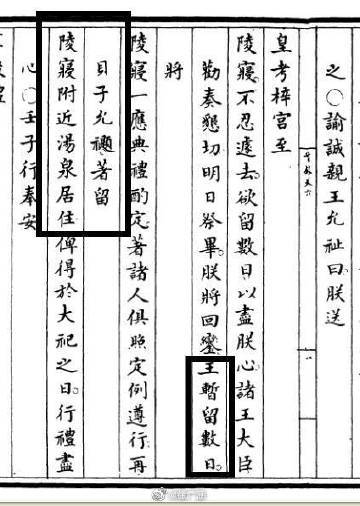 之○諭誠親王允祉曰朕送
皇考梓宮至
陵寢不忍遽去欲留數日以盡朕心諸王大臣
勸奏懇切明日祭畢朕將回鑾王暫留數日
將
陵寢一應典禮酌定著諸人俱照定例遵行再
貝子允禵著留
陵寢附近湯泉居住俾得於大祀之日行禮盡
心○壬子行奉安